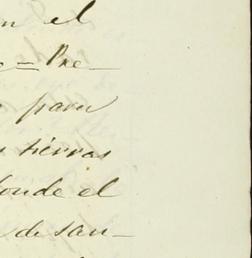 en el
= Pre-
para
tierras
donde el
de san-